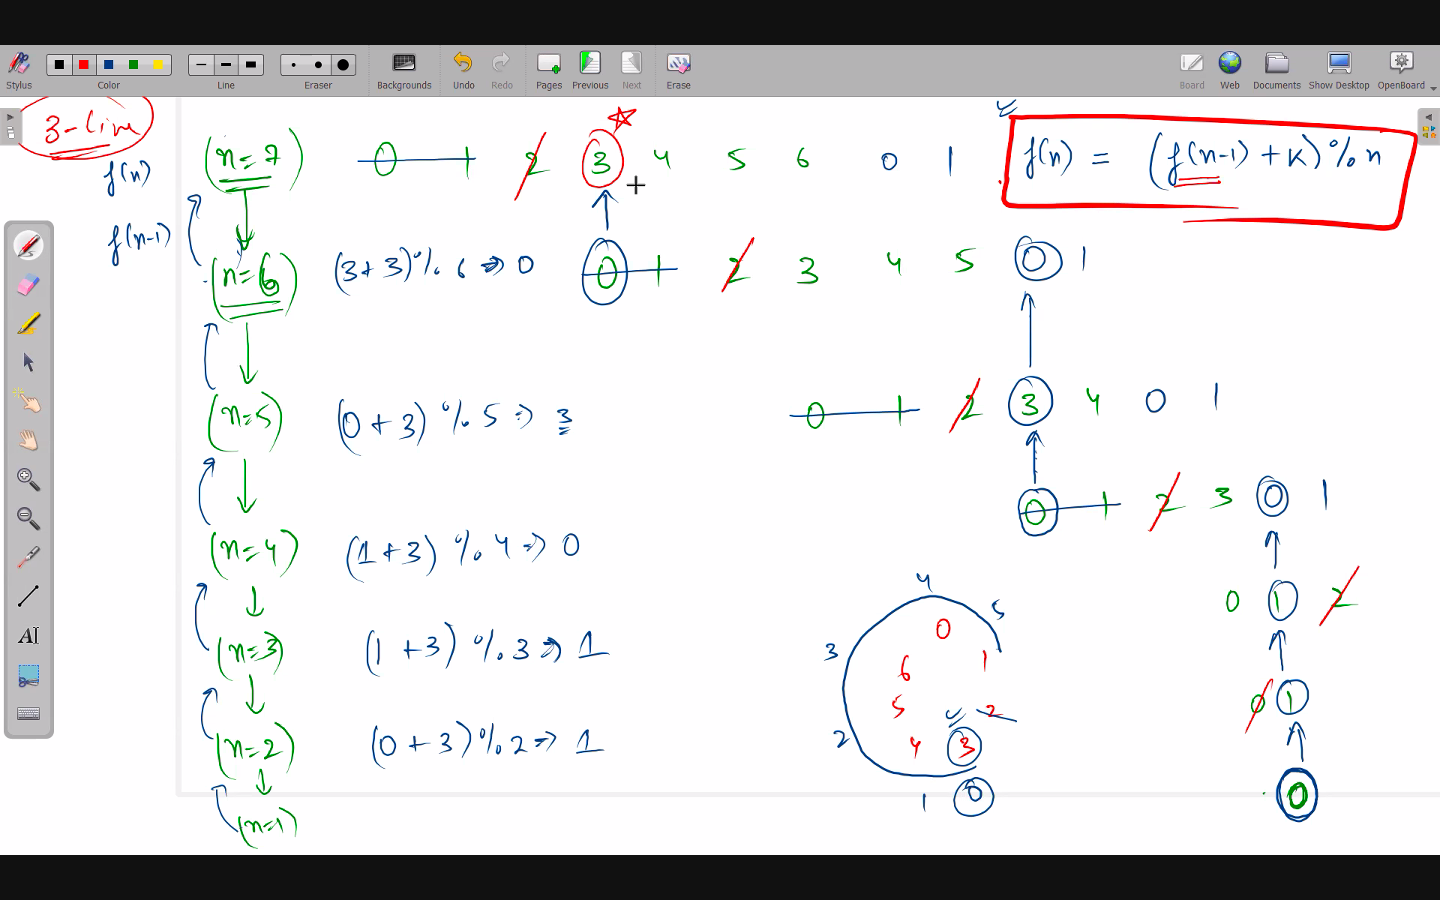 Stylus Color Line Eraser Backgrounds Undo Redo Pages Previous Next Erase Board Web Documents Show Desktop OpenBoard
3-line
f(n)
f(n-1)
(n=7) 0 1 2 3 4 5 6 0 1
f(n) = (f(n-1) + K) % n
(n=6) (3+3)% 6 => 0 0 1 2 3 4 5 0 1
(n=5) (0 + 3) % 5 => 3 0 1 2 3 4 0 1
(n=4) (1 + 3) % 4 => 0 0 1 2 3 0 1
(n=3) (1 + 3) % 3 => 1 0 1 2
(n=2) (0 + 3) % 2 => 1 0 1
(n=1) 0
4
5
0
3
6 1
5 2
2 4 3
1 0
AI